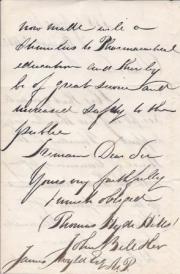 now made will a
stimulus to Pharmaceutical
education and thereby
be of great service and
increased safety to the
public
I remain Dear Sir
Yours very faithfully
& much obliged
(Thomas Hyde Hills)
John
James Esq M.P.